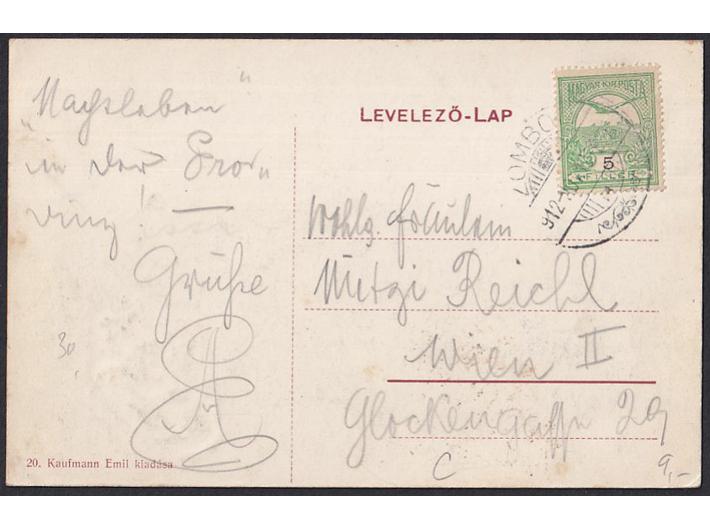 „Nachtleben“
in der Pro-
vinz! —
Grüße
30,
20. Kaufmann Emil kiadása
LEVELEZŐ-LAP
MAGYAR KIR. POSTA
5
FILLÉR
LOMBO
912
Wohlg. Fräulein
Mitzi Reichl
Wien II
Glockengasse 29
C
9,-